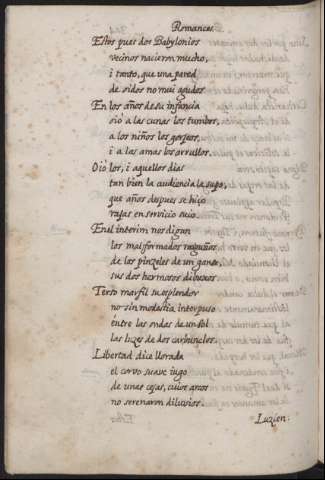 Romances.
Estos pues dos Babylonios
vecinos nacieron mucho,
i tanto, que una pared
de oidos no mui agudos
En los años de su infancia
oió a las cunas los tumbos,
a los niños los gorjeos,
i a las amas los arrullos.
Oiólos, i aquellos dias
tan bien la audiencia la supo,
que años despues se hizo
rajas en servicio suio.
En el interim nos digan
los mal formados rasguños
de los pinzeles de un ganso
sus dos hermosos dibuxos
Terso marfil su esplendor
no sin modestia interpuso
entre las ondas de un Sol
i las luzes de dos carbunclos.
Libertad dice llorada
el corvo suave iugo
de unas cejas, cuios arcos
no serenaron diluvios.
Luzien.